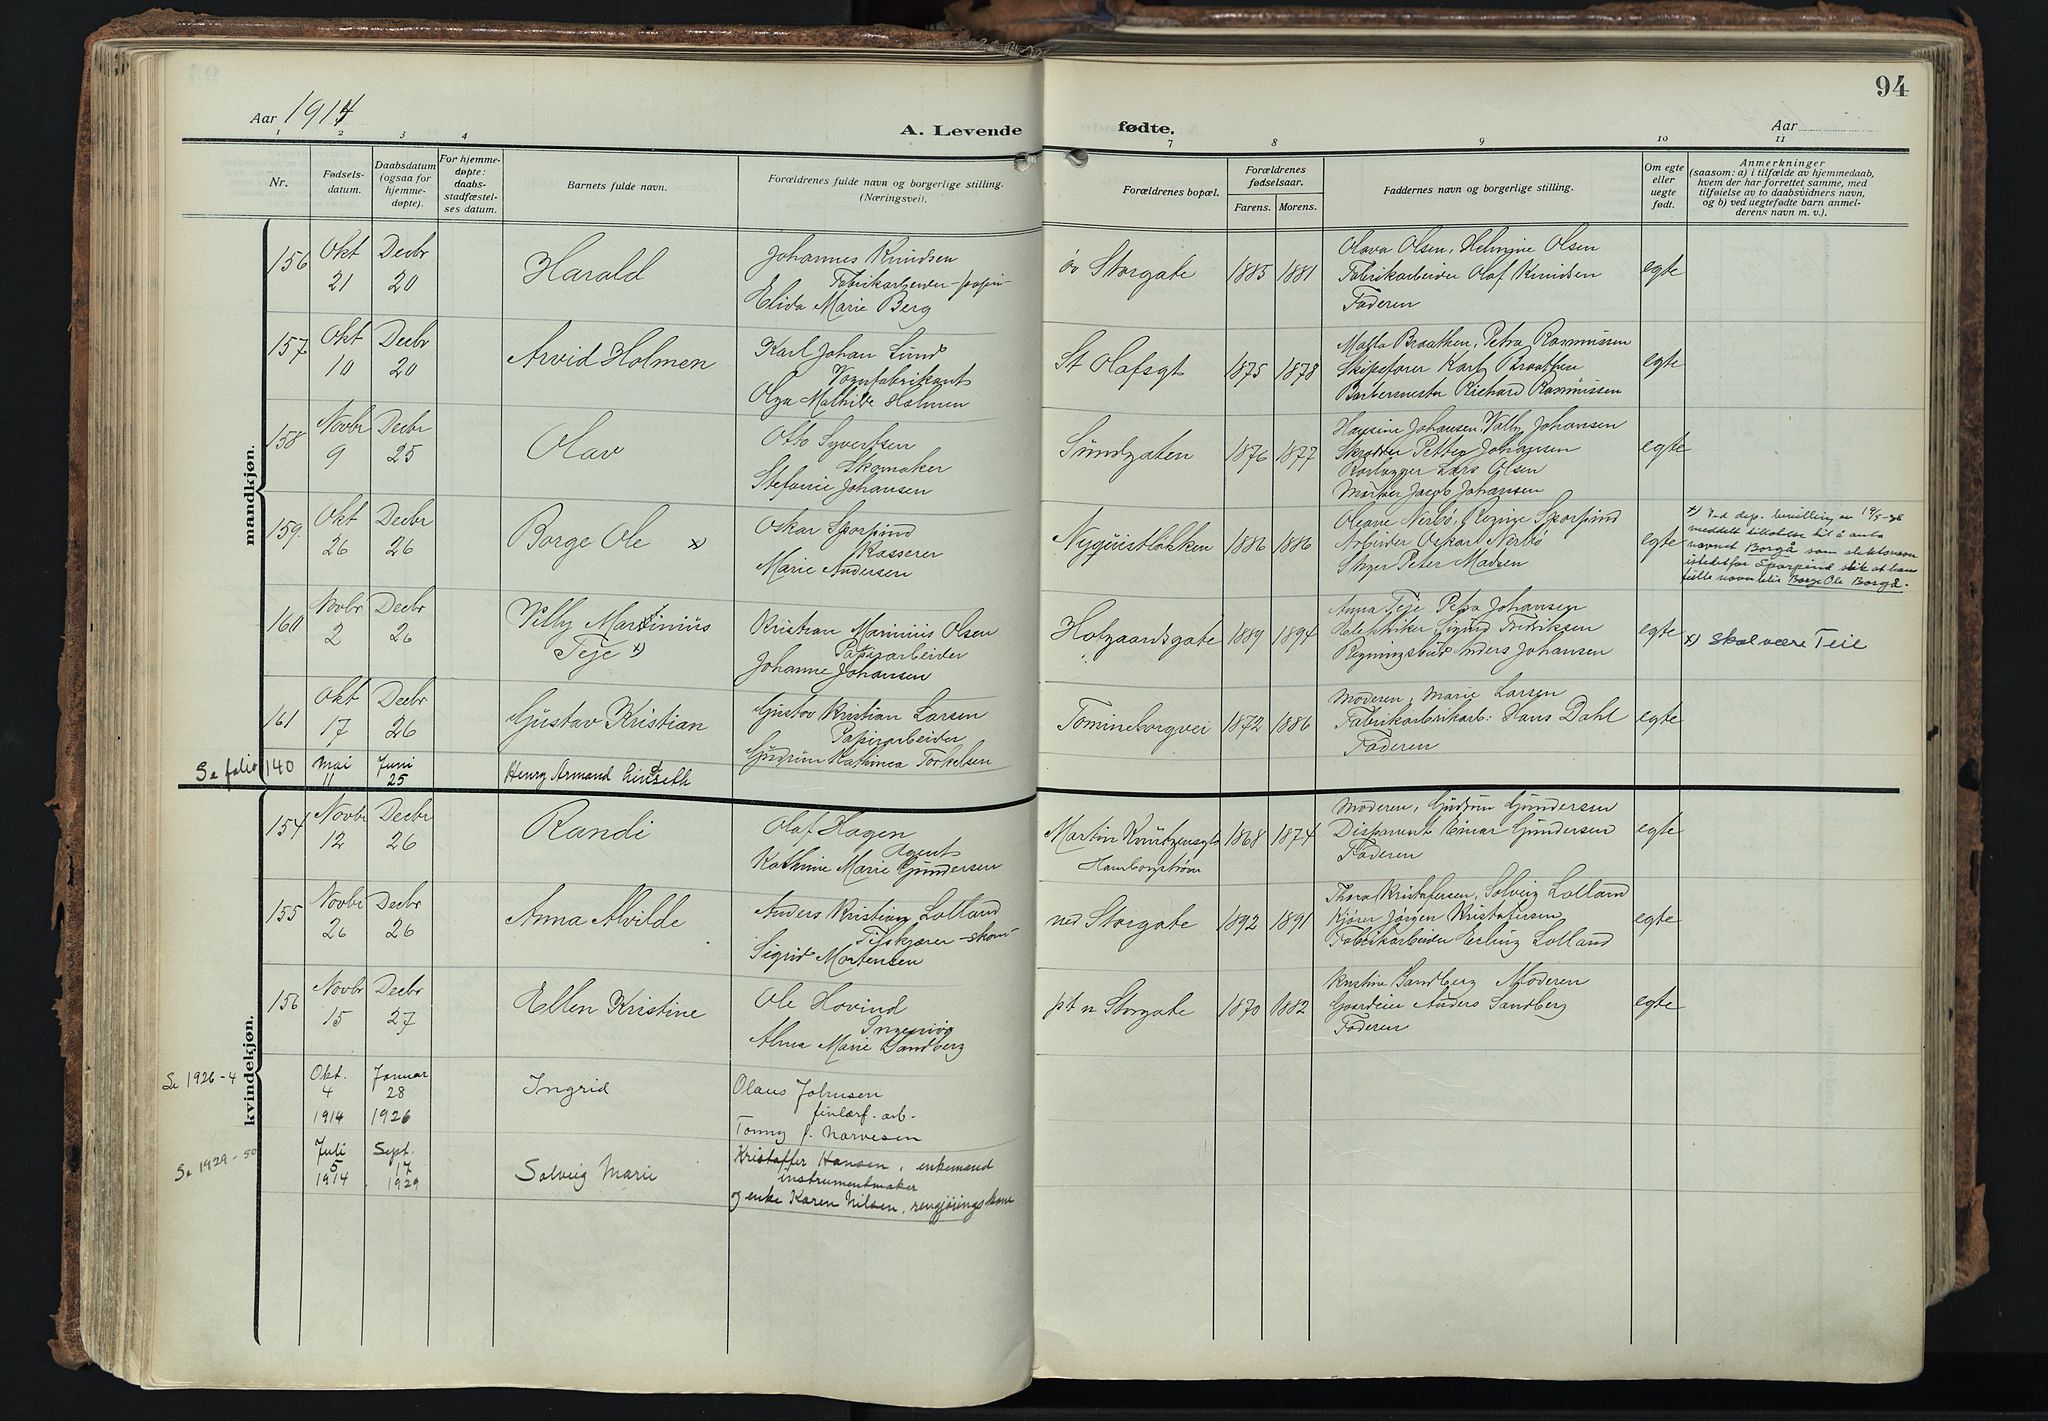 94
Aar 1914
A. Levende fødte.
Aar
1 2 3 4 7 8 9 10 11
Nr.
Fødsels-
datum.
Daabsdatum
(ogsaa for
hjemme-
døpte).
For hjemme-
døpte:
daabs-
stadfæstel-
ses datum.
Barnets fulde navn.
Forældrenes fulde navn og borgerlige stilling.
(Næringsvei).
Forældrenes bopæl.
Forældrenes
fødselsaar.
Farens. Morens.
Faddernes navn og borgerlige stilling.
Om egte
eller
uegte
født.
Anmerkninger
(saasom: a) i tilfælde av hjemmedaab,
hvem der har forrettet samme, med
tilføielse av to daabsvidners navn,
og b) ved uegtefødte barn anmel-
derens navn m. v.).
mandkjøn.
156
Okt
21
Decbr
20
Harald
Johannes Knudsen
Fabrikarbeider - papir-
Elida Marie Berg
øv Storgate
1885 1881
Olava Olsen, Helmine Olsen
Fabrikarbeider Olaf Knudsen
Faderen
egte
157
Okt
10
Decbr
20
Arvid Holmen
Karl Johan Lund
Vognfabrikant
Olga Mathilde Holmen
St Olafsgt
1875 1878
Braathen, Petra Rasmussen
Skipsfører Karl Braathen
Barbermester Richard Rasmussen
egte
158
Novbr
9
Decbr
25
Olav
Otto Syvertsen
Skomaker
Stefanie Johansen
Sundgaten
1876 1877
Johansen, Valby Johansen
Skrædder Petter Johansen
Lars Olsen
Jacob Johansen
egte
159.
Okt
26
Decbr
26
Borge Ole x)
Oskar Sporpind
Kasserer
Marie Andersen
Nyquistløkken
1886 1886
Oleane Nerbø, Regine Sporpind
Arbeider Oskar Nerbø
Peter Madsen
egte
x) Ved dep. bevilling av 19/5-
meddelt tillatelse til å anta
navnet Borgå som slektsnavn
istedetfor Sporpind slik at hans
fulle navn blir Borge Ole Borgå.
160
Novbr
2
Decbr
26
Villy Martinius
Teje x)
Kristian Marinius Olsen
Papirarbeider
Johanne Johansen
Holgaardsgate
1889 1894
Anna Teje Petra Johansen
Elektriker Sigurd Fredriksen
Regningsbud Anders Johansen
egte
x) Skal være Teie
161
Okt
17
Decbr
26
Gustav Kristian
Gustav Kristian Larsen
Papirarbeider
Gudrun Kathinca Torkelsen
Tomineborgvei
1872 1886
Moderen, Marie Larsen
Fabrikarbrikarb: Hans Dahl
Faderen
egte
Se folio 140
Mai
11
Juni
25
Henry Armand Lindseth
kvindekjøn.
154
Novbr
12
Decbr
26
Randi
Olaf Hagen
Agent
Kathrine Marie Gundersen
Martin Knutzensgt
Hamborgstrøm
1868 1874
Moderen, Gudrun Gundersen
Disponent Einar Gundersen
Faderen
egte
155
Novbr
26
Decbr
26
Anna Alvilde
Anders Kristian Lolland
Tilskjærer - skom-
Sigrid Mortensen
ned Storgate
1892 1891
Thora Kristofersen, Solveig Lolland
Kjører Jørgen Kristofersen
Fabrikarbeider Erling Lolland
egte
156
Novbr
15
Decbr
27
Ellen Kristine
Ole Hovind
Ingeniør
Alma Marie Sandberg
pt n Storgate
1870 1882
Kristine Sandberg Moderen
Gaardeier Anders Sandberg
Faderen
egte
Se 1926-4
Okt.
4
1914
Januar
28
1926
Ingrid
Olaus Johnsen
arb-
Tonny f. Narvesen
Se 1929-50
Juli
5
1914
Sept.
17
1929
Solveig Marie
Kristoffer Hansen, enkemand
instrumentmaker
og enke Karen Nilsen, rengjøringskone